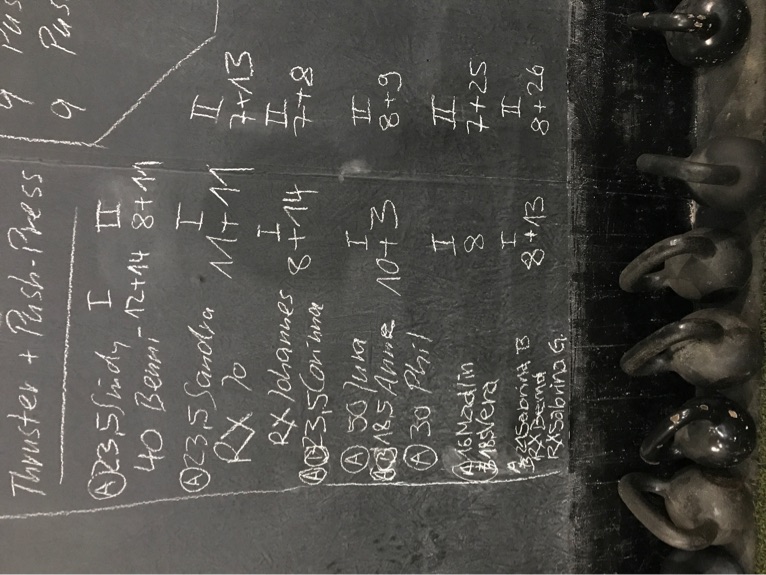 9 Pus
9 Pus
Thruster + Push-Press
I II
A 23,5 Sindy
40 Benni - 12+14 8+11
A 23,5 Sandra I II
RX Jo 11+11 7+13
RX Johannes I II
A 23,5 Corinna 8+14 7+8
A 50 Jura I II
18,5 Anne 10+3 8+9
A 30 Phil
I II
A 16 Madlin 8 7+25
18 Vera
I II
21 Sabrina B 8+13 8+26
RX Bernd
RX Sabrina G.